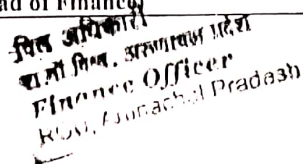 ad of Finance
वित्त अधिकारी
अरुणाचल प्रदेश
Finance Officer
Arunachal Pradesh